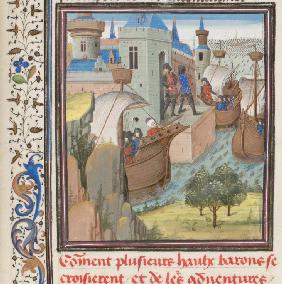 Comment plusieurs haulx barons se
croisierent et de les adventures